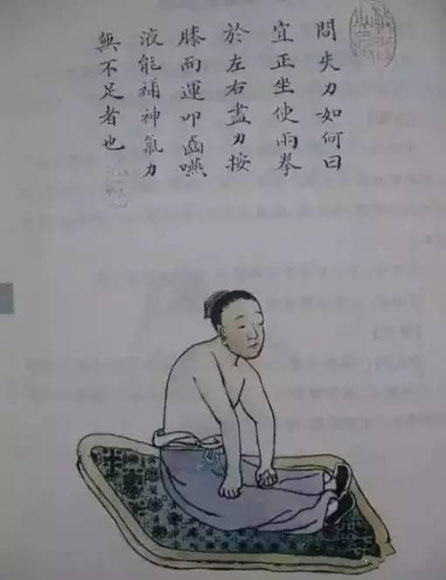 問失力如何曰
宜正坐使兩拳
於左右盡力按
膝而運叩齒嚥
液能補神氣力
無不足者也